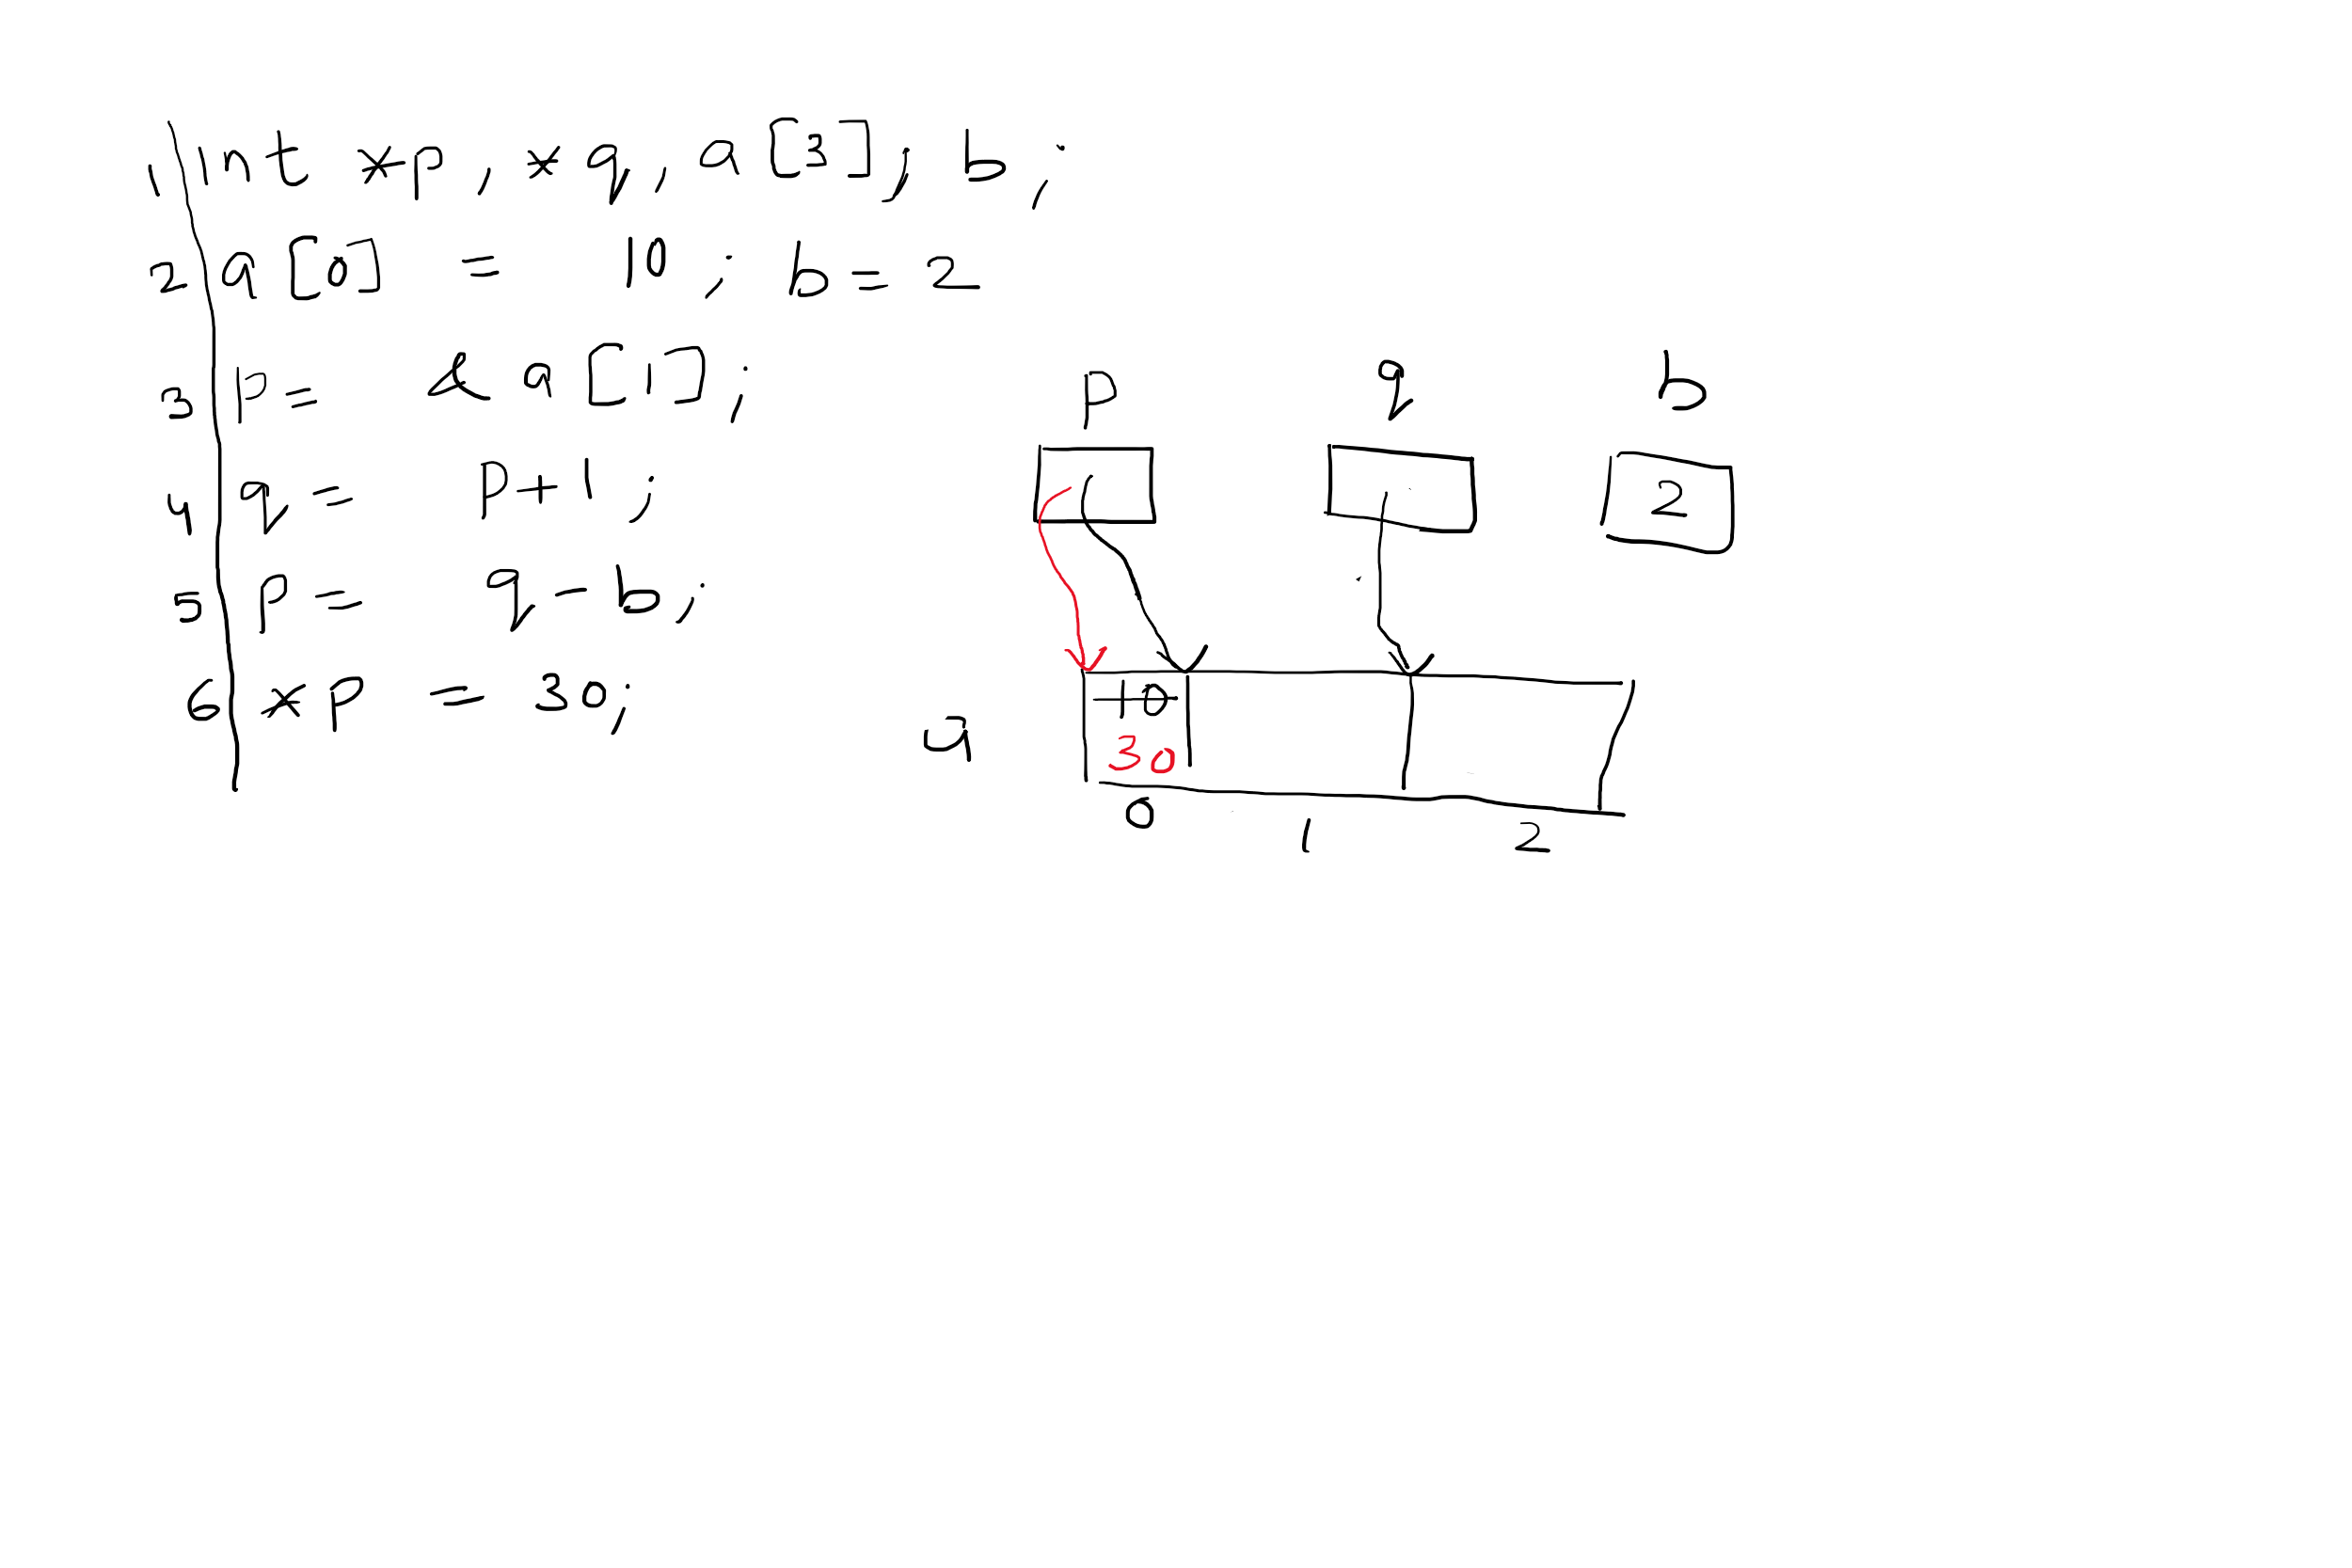 1 int *p, *q, a[3], b;
2 a[0] = 10; b=2
3 p= &a[1];
4 q= p+1;
5 p= q-b;
6 *p = 30;
p q b
2
10
a 30
0 1 2